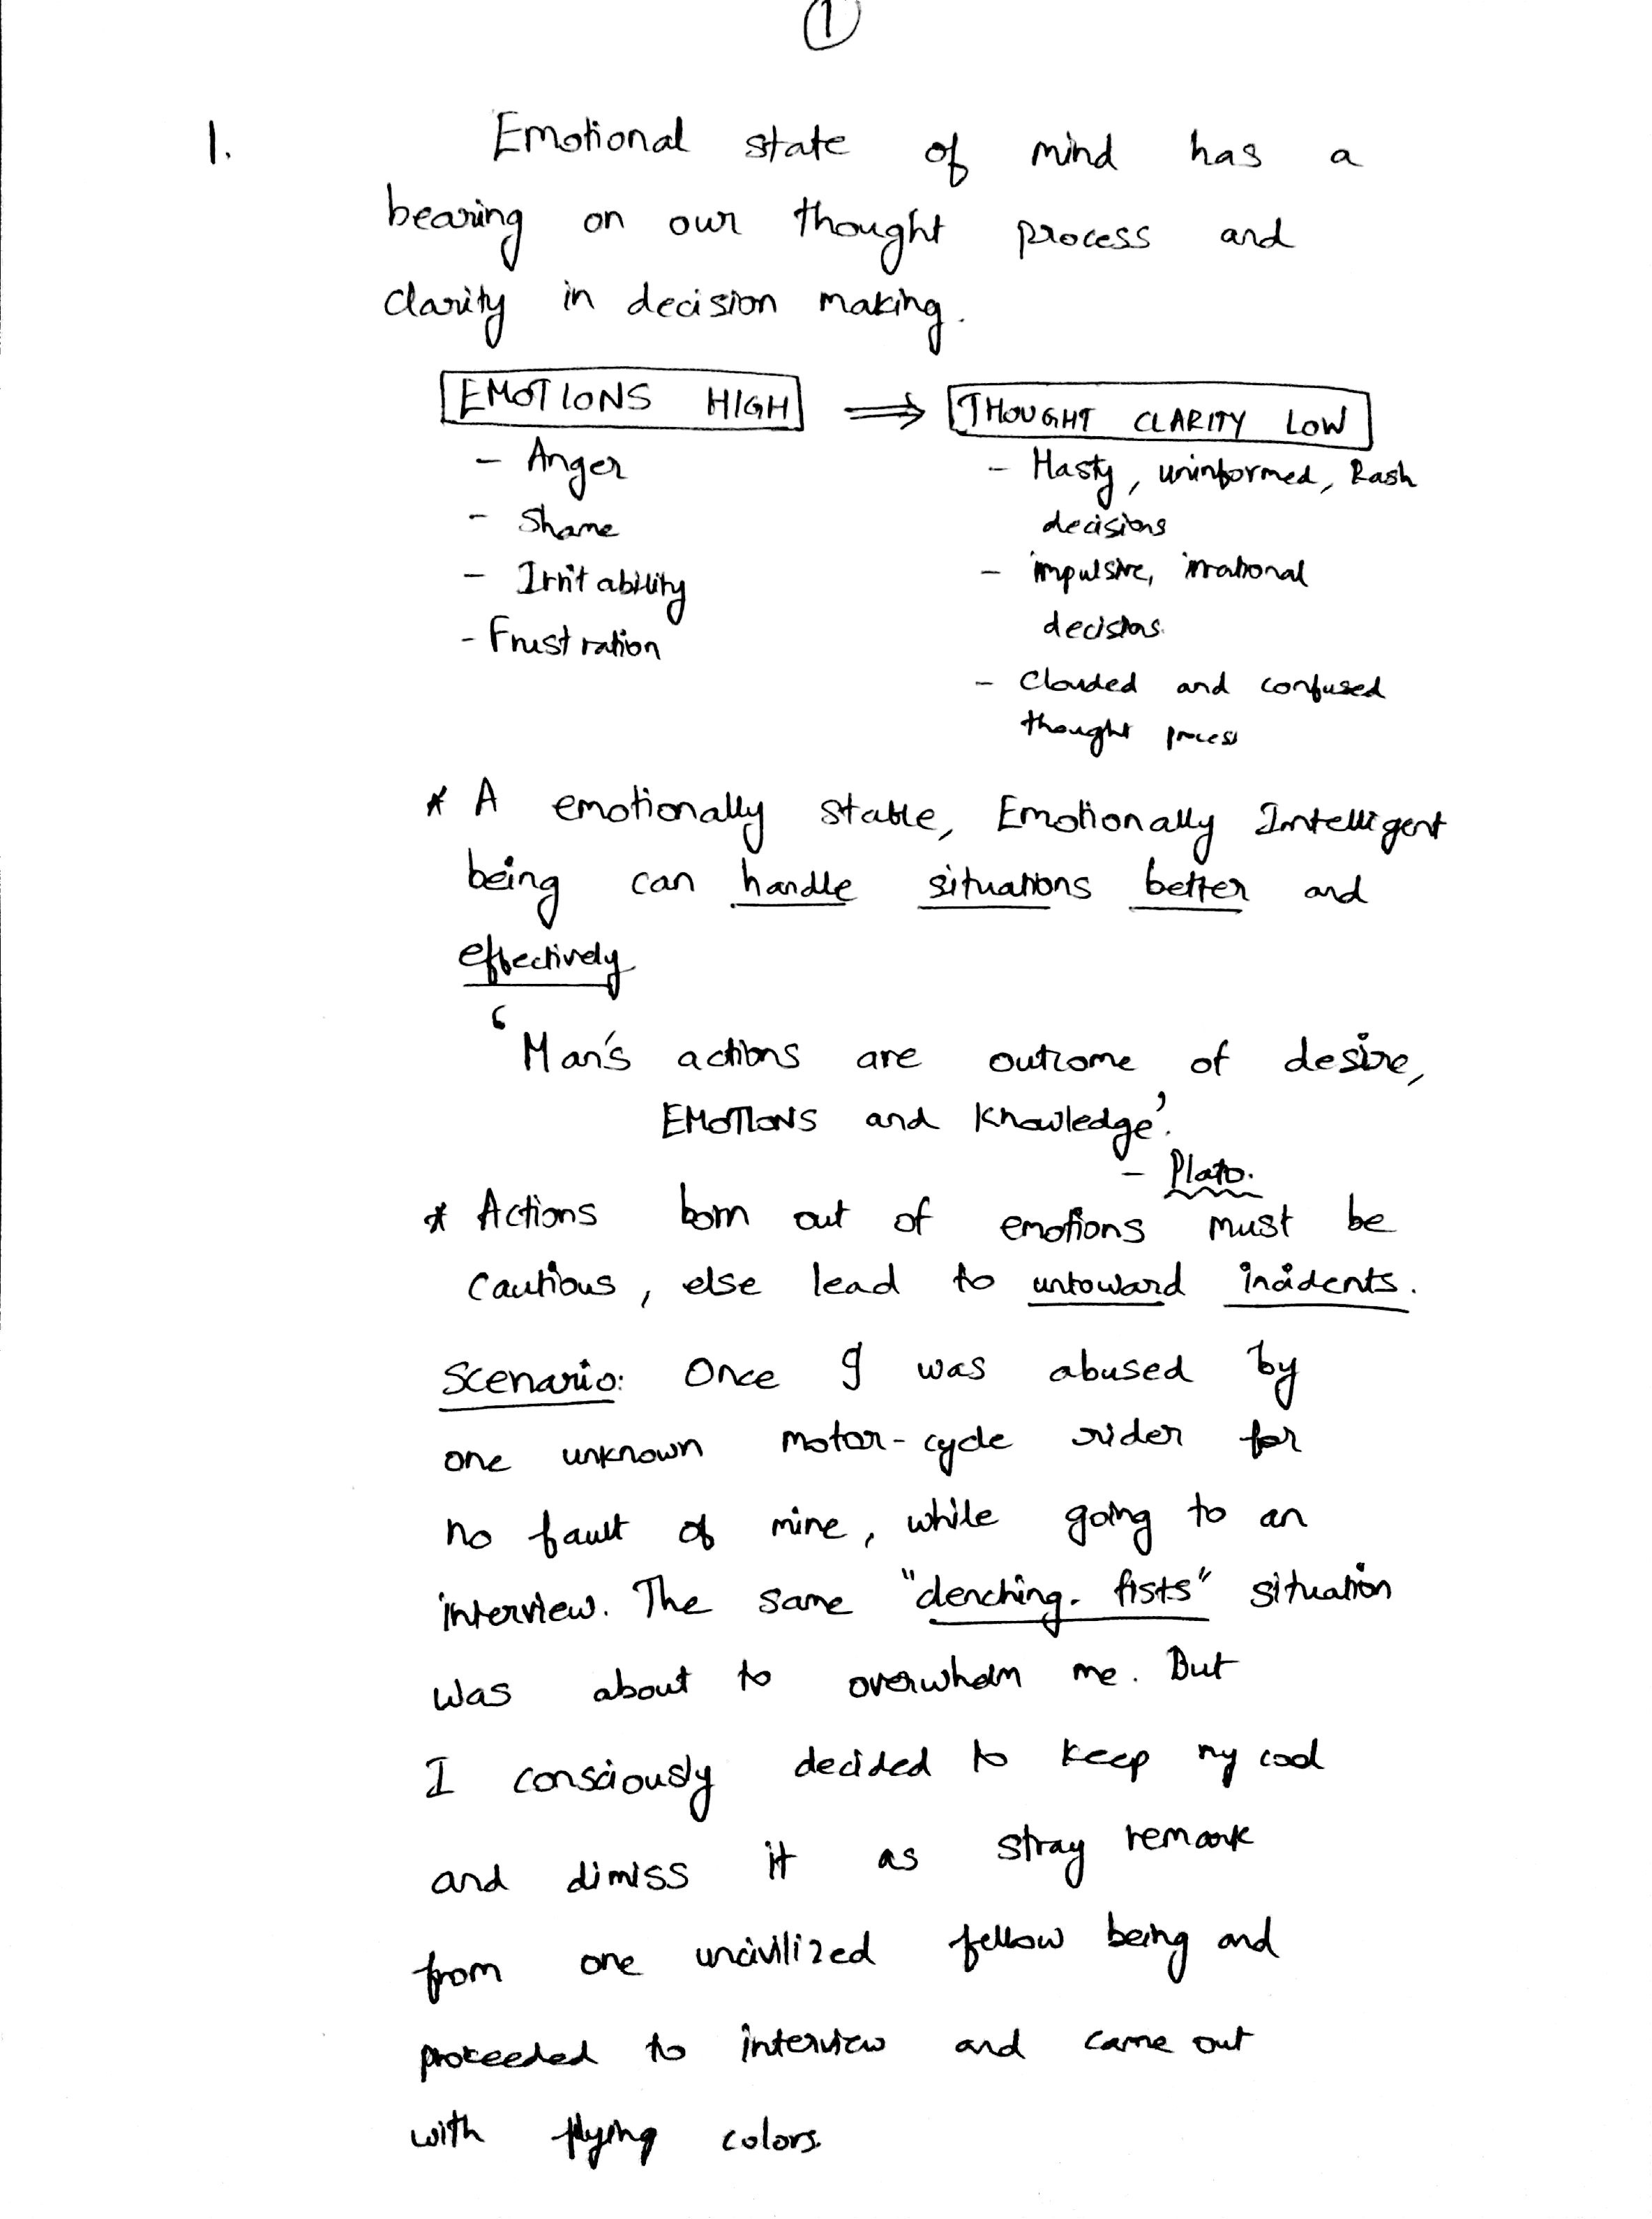 1
1. Emotional state of mind has a
bearing on our thought process and
clarity in decision making.
EMOTIONS HIGH ⟹ THOUGHT CLARITY LOW
- Anger
- Shame
- Irritability
- Frustration
- Hasty, uninformed, Rash
decisions
- impulsive, irrational
decisions.
- Clouded and confused
thought process
* A emotionally stable, Emotionally Intelligent
being can handle situations better and
effectively
'Man's actions are outcome of desire,
EMOTIONS and Knowledge'.
- Plato.
* Actions born out of emotions must be
cautious, else lead to untoward incidents.
Scenario: Once I was abused by
one unknown motor-cycle rider for
no fault of mine, while going to an
interview. The same "clenching fists" situation
was about to overwhelm me. But
I consciously decided to keep my cool
and dimiss it as stray remark
from one uncivilized fellow being and
proceeded to interview and came out
with flying colors.